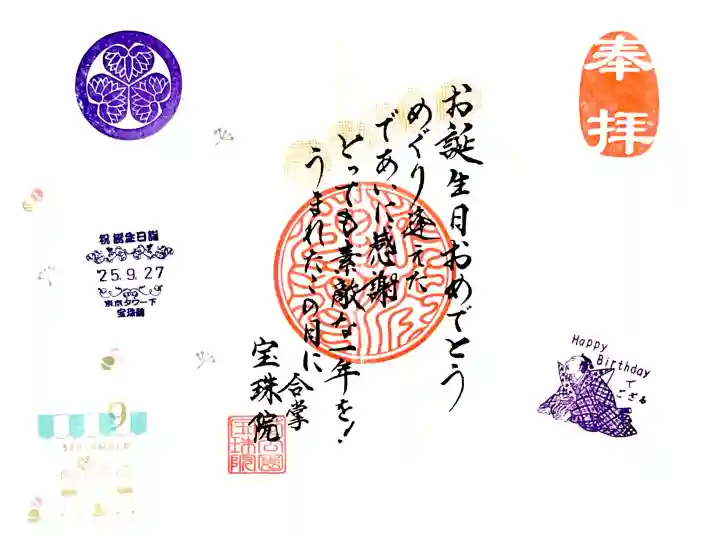 奉拝
お誕生日おめでとう
めぐり逢えた
であいに感謝
とっても素敵な一年を!
うまれたこの日に
合掌
宝珠院
Happy
Birthday
で
ござる
祝誕生日御
'25.9.27
東京タワー下
宝珠院
9
SEPTEMBER